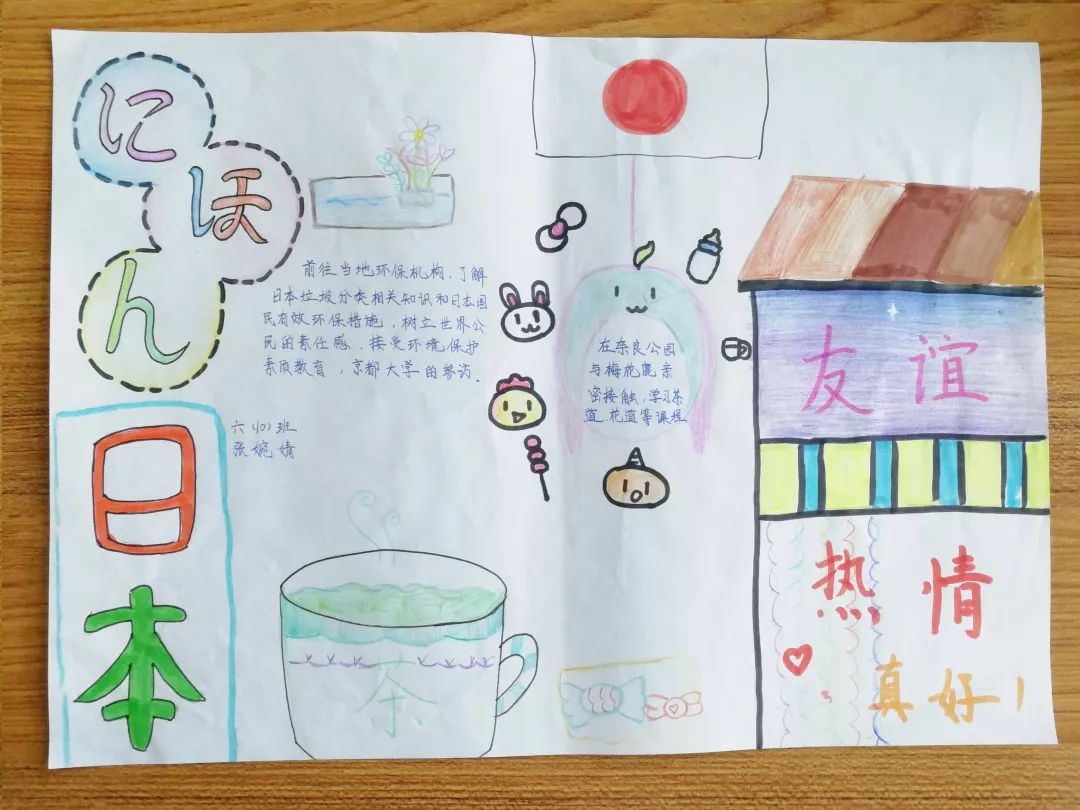 にほん
前往当地环保机构，了解
日本垃圾分类相关知识和日本国
民有效环保措施，树立世界公
民的素任感，接受环境保护
素质教育，京都大学的参访.
六⑽班
张婉婧
日本
在奈良公园
与梅花鹿亲
密接触，学习茶
道、花道等课程
茶
友谊
热情
真好！